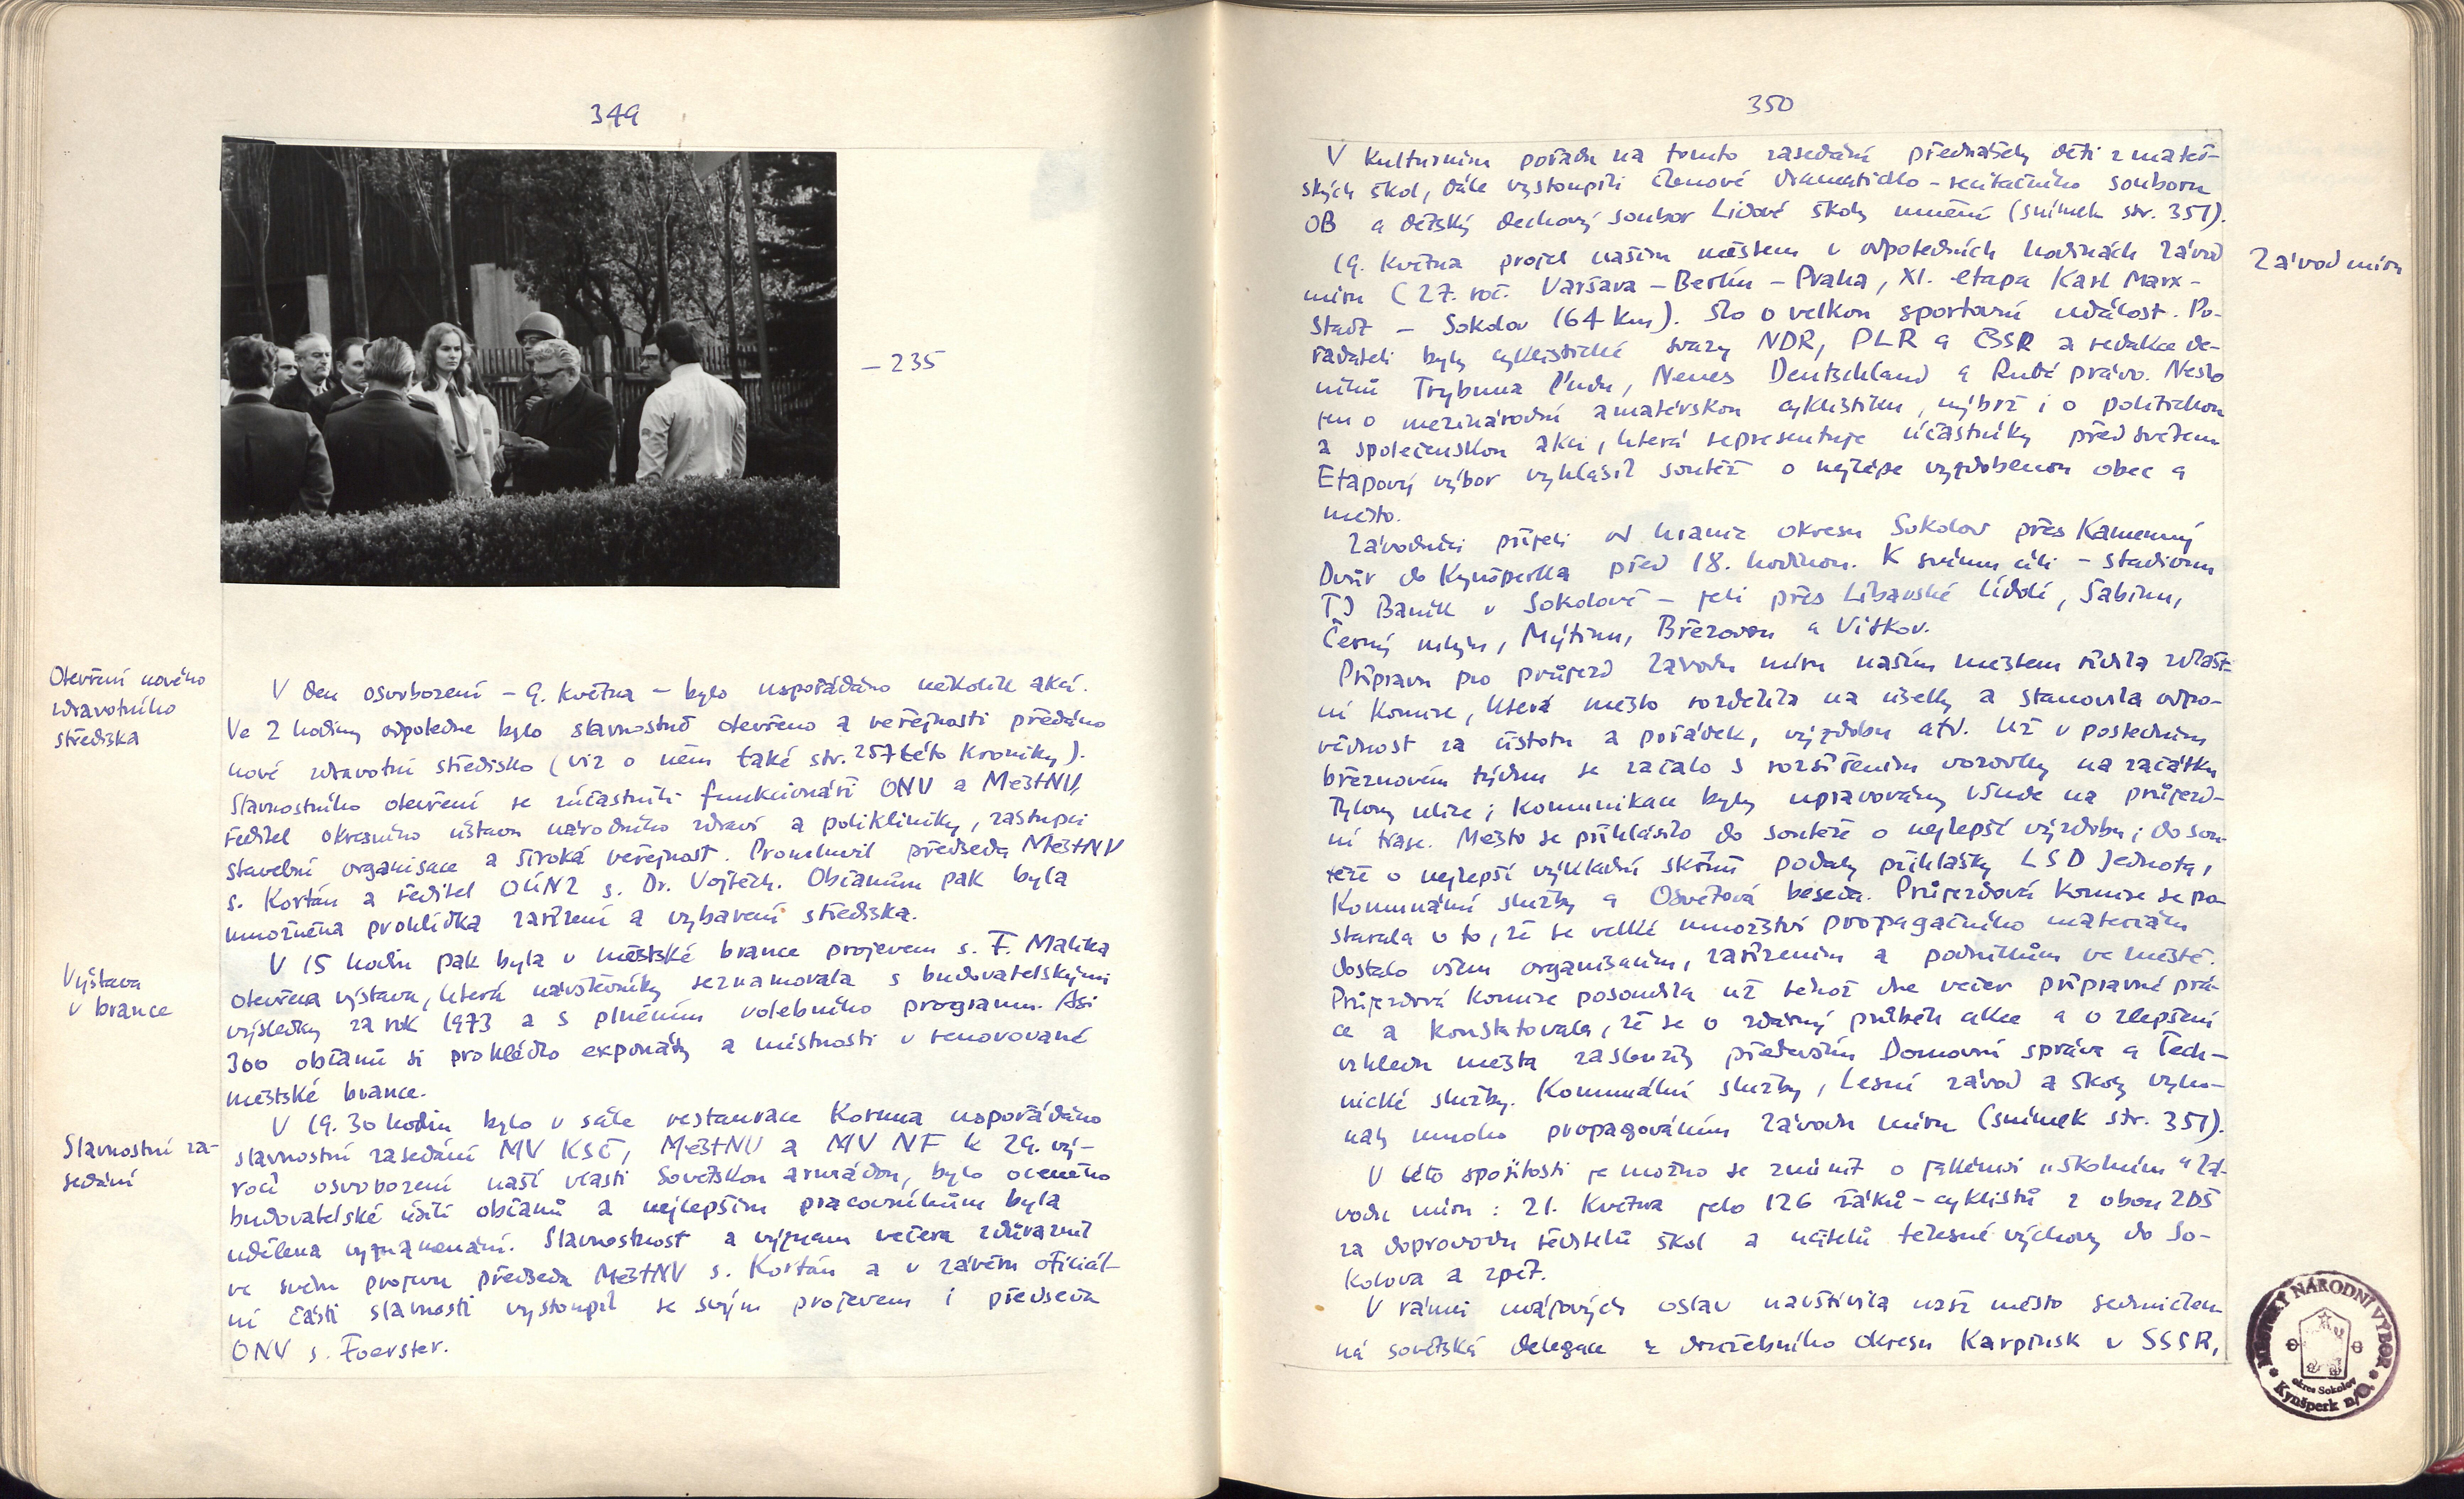 349
– 235
Otevření nového
zdravotního
střediska
V den osvobození – 9. května – bylo uspořádáno několik akcí.
Ve 2 hodiny odpoledne bylo slavnostně otevřeno a veřejnosti předáno
nové zdravotní středisko (viz o něm také str. 257 této kroniky).
Slavnostního otevření se zúčastnili funkcionáři ONV a MěstNV,
ředitel okresního ústavu národního zdraví a polikliniky, zástupci
stavební organisace a široká veřejnost. Promluvil předseda MěstNV
s. Kortán a ředitel OÚNZ s. Dr. Vojtěch. Občanům pak byla
umožněna prohlídka zařízení a vybavení střediska.
Výstava
v brance
V 15 hodin pak byla v městské brance projevem s. F. Malíka
otevřena výstava, která návštěvníky seznamovala s budovatelskými
výsledky za rok 1973 a s plněním volebního programu. Asi
300 občanů si prohlédlo exponáty a místnosti v renovované
městské brance.
Slavnostní za-
sedání
V 19.30 hodin bylo v sále restaurace Koruna uspořádáno
slavnostní zasedání MV KSČ, MěstNV a MV NF k 29. vý-
ročí osvobození naší vlasti Sovětskou armádou, bylo oceněno
budovatelské úsilí občanů a nejlepším pracovníkům byla
udělena vyznamenání. Slavnostnost a význam večera zdůraznil
ve svém projevu předseda MěstNV s. Kortán a v závěru oficiál-
ní části slavnosti vystoupil se svým projevem i předseda
ONV s. Foerster.
350
V kulturním pořadu na tomto zasedání přednášely děti z mateř-
ských škol, dále vystoupili členové dramaticko-recitačního souboru
OB a dětský dechový soubor Lidové školy umění (snímek str. 351).
Závod míru
19. května projel naším městem v odpoledních hodinách Závod
míru (27. roč. Varšava – Berlín – Praha, XI. etapa Karl Marx-
Stadt – Sokolov (64 km). Šlo o velkou sportovní událost. Po-
řadateli byly cyklistické svazy NDR, PLR a ČSSR a redakce de-
níků Trybuna Ludu, Neues Deutschland a Rudé právo. Nešlo
jen o mezinárodní amatérskou cyklistiku, nýbrž i o politickou
a společenskou akci, která representuje účastníky před světem
Etapový výbor vyhlásil soutěž o nejlépe vyzdobenou obec a
město.
Závodníci přijeli od hranic okresu Sokolov přes Kamenný
Dvůr do Kynšperka před 18. hodinou. K svému cíli – stadionu
TJ Baník v Sokolově – jeli přes Libavské Údolí, Šabinu,
Černý mlýn, Mýtinu, Březovou a Vítkov.
Přípravu pro průjezd Závodu míru naším městem řídila zvlášt-
ní komise, která město rozdělila na úseky a stanovila odpo-
vědnost za čistotu a pořádek, výzdobu atd. Už v posledním
březnovém týdnu se začalo s rozšířením vozovky na začátku
Tylovy ulice; komunikace byly upravovány všude na průjezd-
ní trase. Město se přihlásilo do soutěže o nejlepší výzdobu; do sou-
těže o nejlepší výkladní skříně podaly přihlášky LSD Jednota,
Komunální služby a Osvětová beseda. Průjezdová komise se po-
starala o to, že se velké množství propagačního materiálu
dostalo všem organisacím, zařízením a podnikům ve městě.
Průjezdová komise posoudila už téhož dne večer přípravné prá-
ce a konstatovala, že se o zdárný průběh akce a o zlepšení
vzhledu města zasloužily především Domovní správa a Tech-
nické služby. Komunální služby, Lesní závod a školy vyko-
naly mnoho propagováním Závodu míru (snímek str. 351).
V této spojitosti je možno se zmínit o jakémsi „školním“ Zá-
vodu míru: 21. května jelo 126 žáků-cyklistů z obou ZDŠ
za doprovodu ředitelů škol a učitelů tělesné výchovy do So-
kolova a zpět.
V rámci májových oslav navštívila naše město sedmičlen-
ná sovětská delegace z družebního okresu Karpinsk v SSSR,
MĚSTSKÝ NÁRODNÍ VÝBOR
okres Sokolov
Kynšperk n/O.